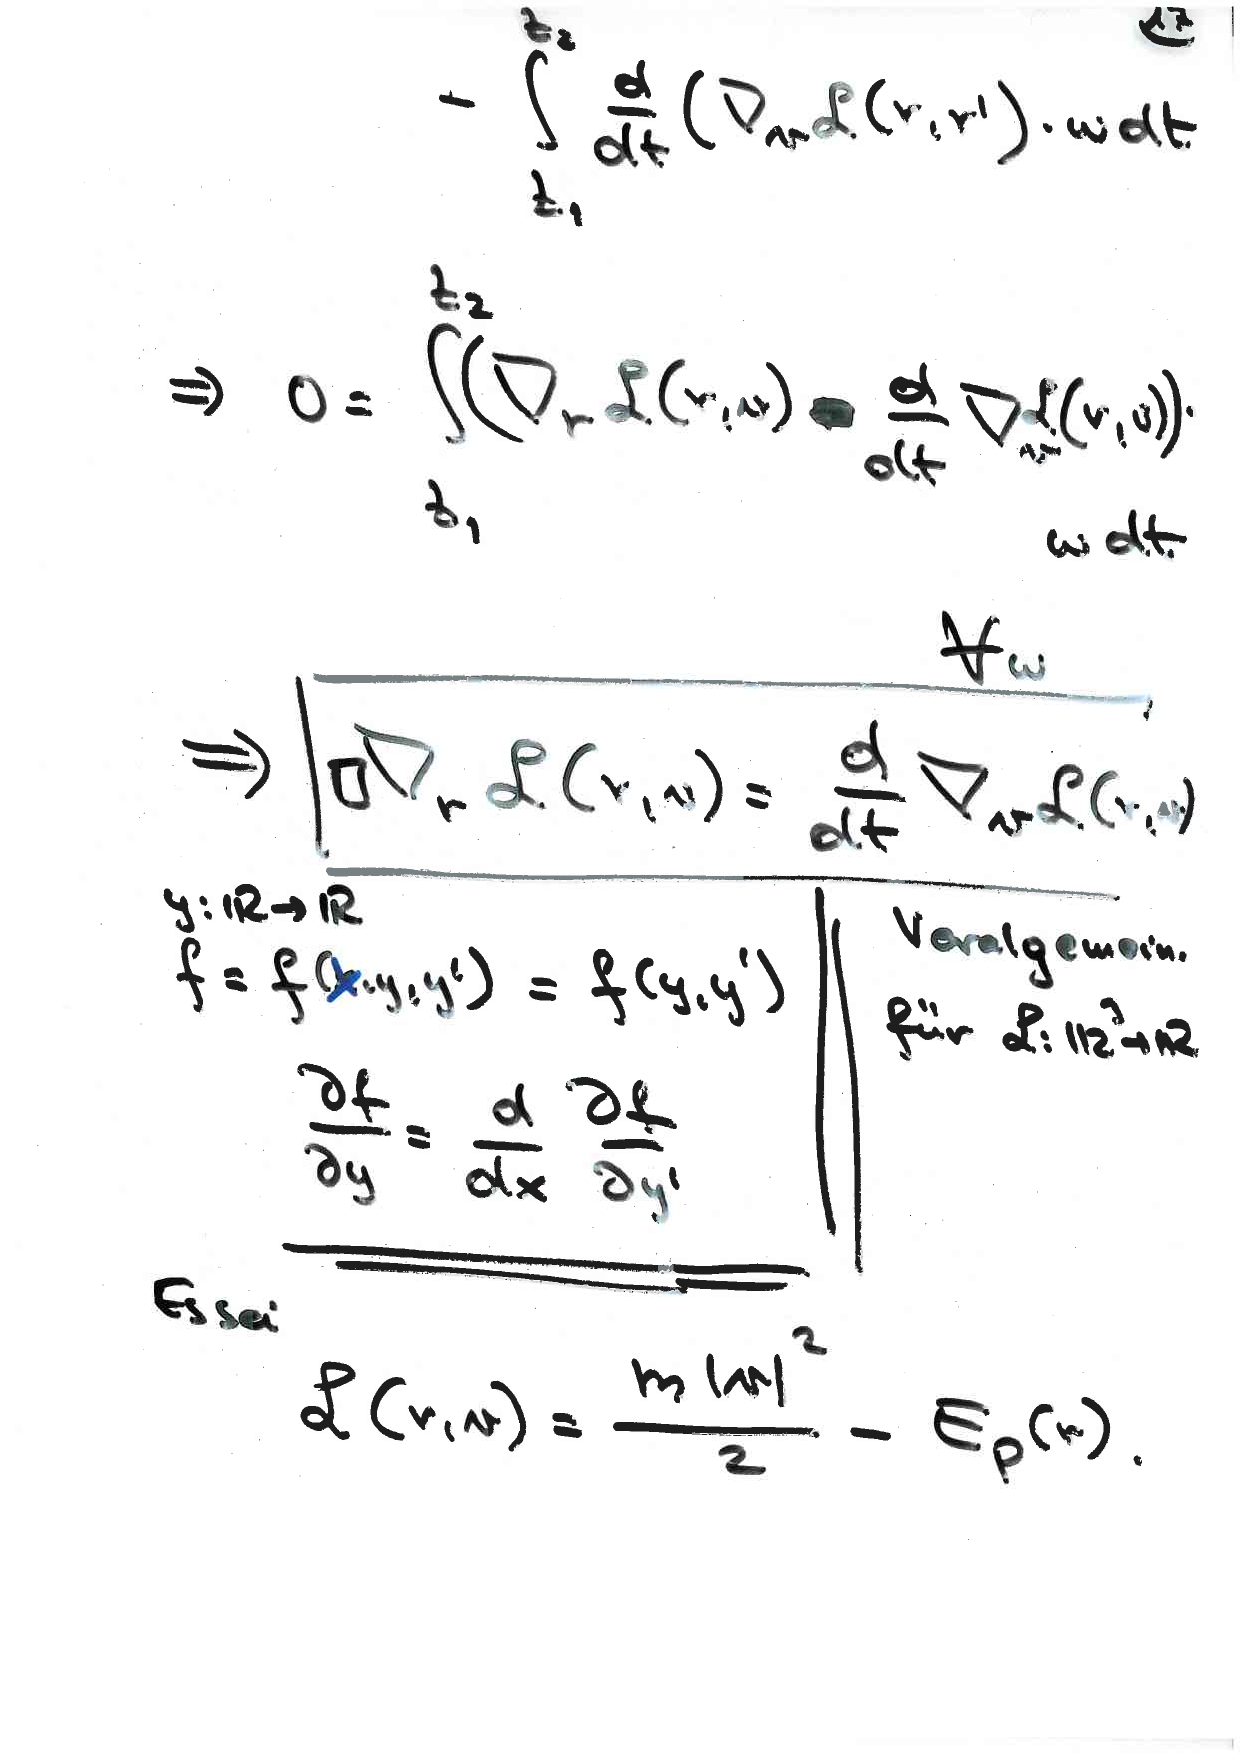 17
- ∫_{t_1}^{t_2} d/dt (∇_v ℒ(r, r') · w dt
⇒ 0 = ∫_{t_1}^{t_2} (∇_r ℒ(r, v) - d/dt ∇_v ℒ(r, v)) ·
w dt
∀w
⇒ ∇_r ℒ(r, v) = d/dt ∇_v ℒ(r, v)
y: ℝ → ℝ
f = f(x, y, y') = f(y, y')
Veralgemein.
für ℒ: ℝ³ → ℝ
∂f/∂y = d/dx ∂f/∂y'
Es sei
ℒ(r, v) = m|v|²/2 - E_p(r).